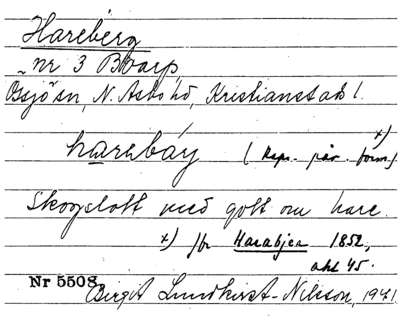 Hareberg
nr 3 Boarp,
N. Åsbo hd, Kristianstads l.
harabáy (Repr. pår. form.) x)
Skogslott med gott om hare.
x) jfr Harabjer 1852,
akt 45.
Nr 5508. Birgit Lundkvist-Nilsson, 1941